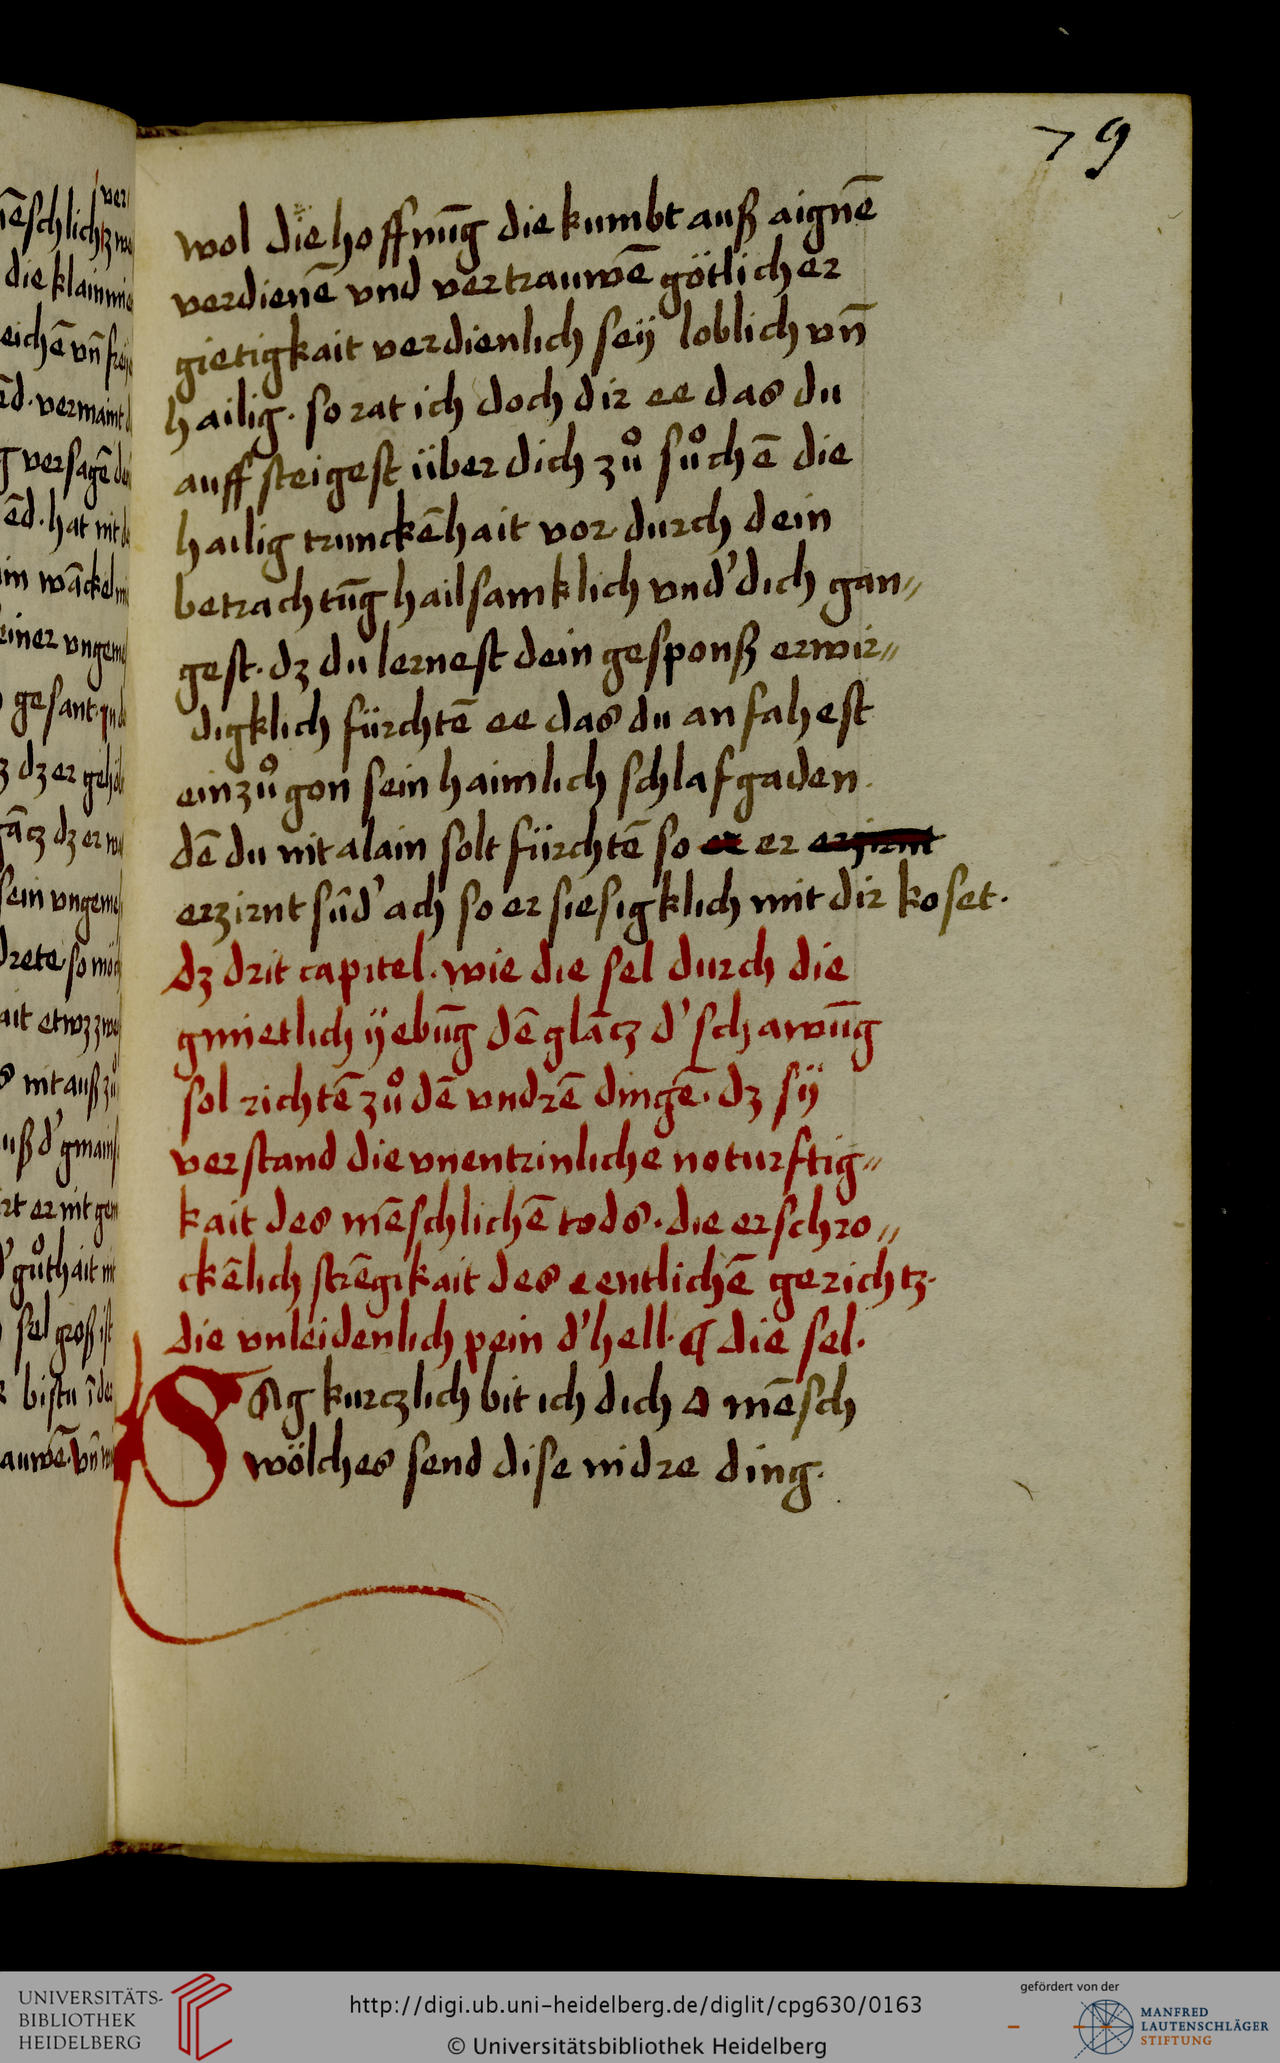 79
wol die hoffnūg die kumbt auß aignē
verdienē vnd vertrauwē götlicher
gietigkait verdienlich seÿ loblich vn̄
hailig. so rat ich doch dir ee das du
auff steigest über dich zů sůchē die
hailig trunckēhait vor durch dein
betrachtūg hailsamklich vnd' dich gan„
gest. dz du lernest dein gesponß erwir„
digklich fürchtē ee das du an fahest
ein zů gon sein haimlich schlafgaden.
dē du nit alain solt fürchtē so er er erzirnt
erzirnt sūd' ach so er siesigklich mit dir koset.
dz drit capitel. wie die sel durch die
gmietlich ÿebūg dē glācz d' schawūg
sol richtē zů dē vndrē dingē. dz sÿ
verstand die vnentrinliche noturftig„
kait des mēschlichē tods. die erschro„
ckēlich strēgikait des eentlichē gerichtz.
die vnleidenlich pein d' hell. ¶ die sel.
SAg kurczlich bit ich dich o mēsch
wölches send dise nidre ding.
UNIVERSITÄTS-
BIBLIOTHEK
HEIDELBERG
http://digi.ub.uni-heidelberg.de/diglit/cpg630/0163
© Universitätsbibliothek Heidelberg
gefördert von der
MANFRED
LAUTENSCHLÄGER
STIFTUNG